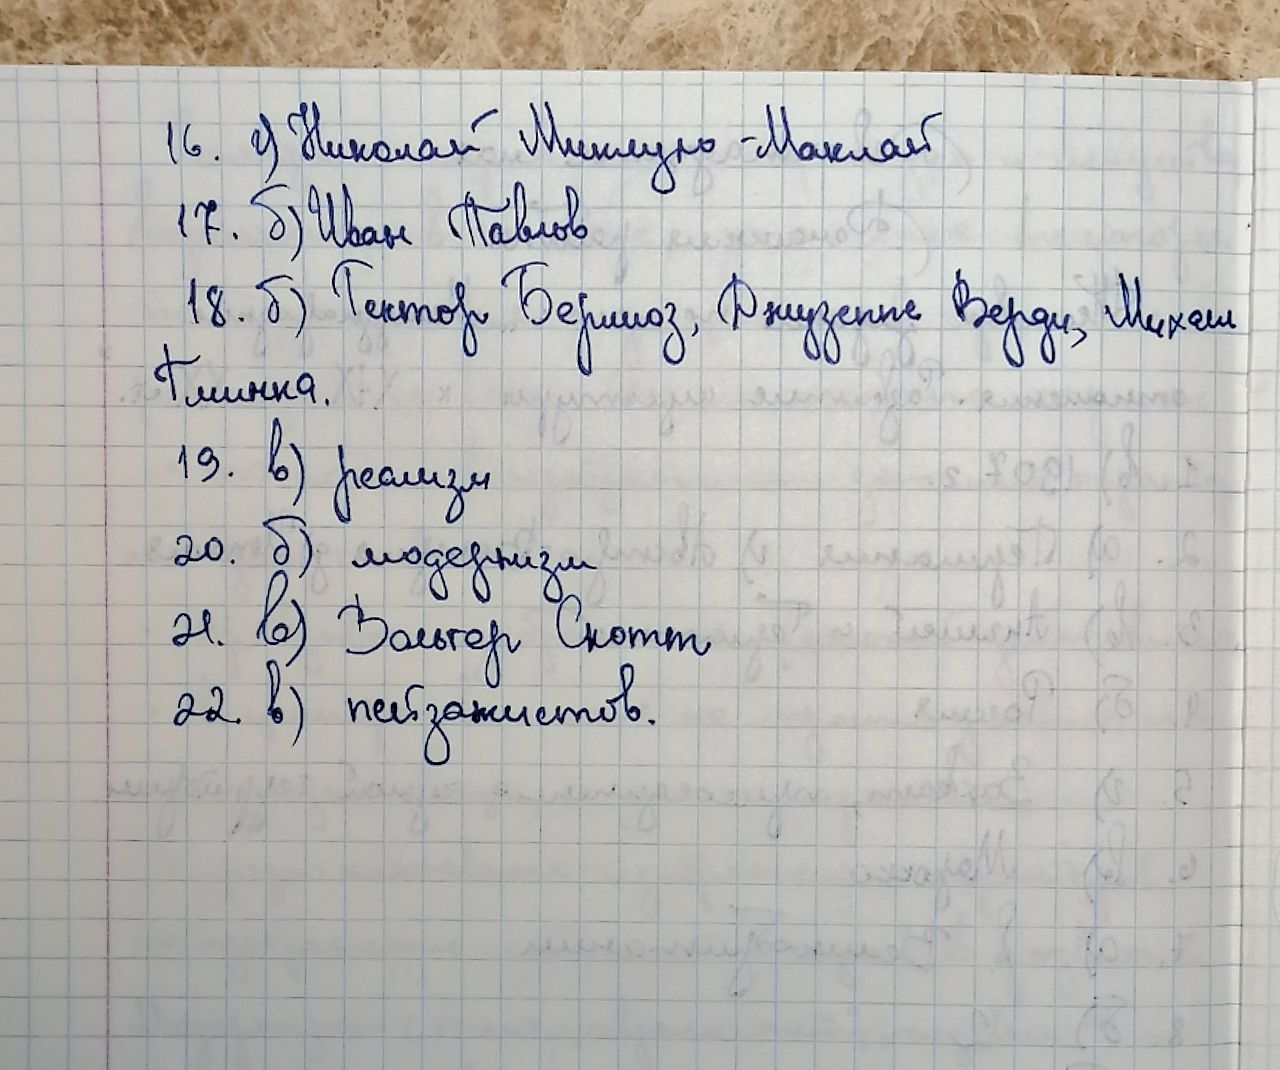 16. г) Николай Миклухо-Маклай
17. б) Иван Павлов
18. б) Гектор Берлиоз, Джузеппе Верди, Михаил
Глинка.
19. в) реализм
20. б) модернизм
21. в) Вальтер Скотт
22. в) пейзажистов.